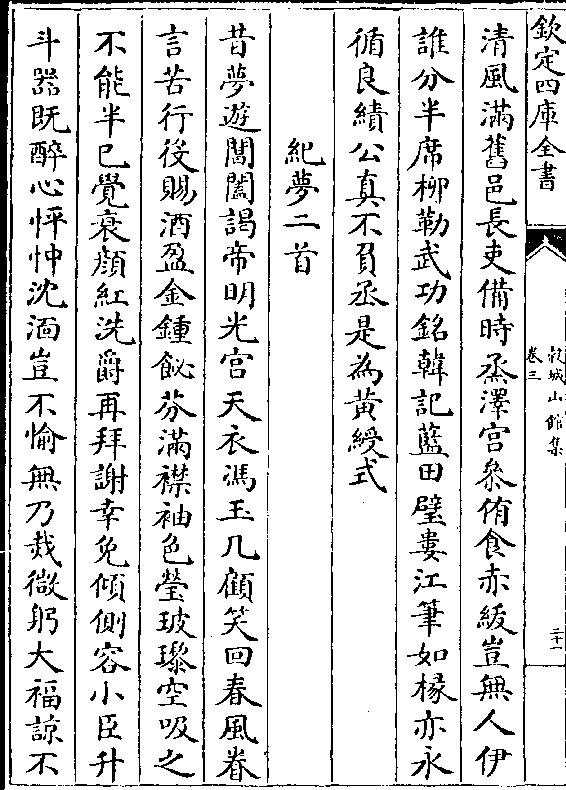 欽定四庫全書
穀城山館集
卷三
二十一
清風滿舊邑長吏備時烝澤宮叅侑食赤紱豈無人伊
誰分半席柳勒武功銘韓記藍田壁婁江筆如椽亦永
循良績公真不負丞是為黃綬式
紀夢二首
昔夢遊閶闔謁帝明光宮天衣馮玉几顧笑回春風眷
言苦行役賜酒盈金鍾飶芬滿襟袖色瑩玻瓈空吸之
不能半已覺衰顔紅洗爵再拜謝幸免傾側容小臣升
斗器既醉心怦忡沈湎豈不愉無乃烖微躬大福諒不